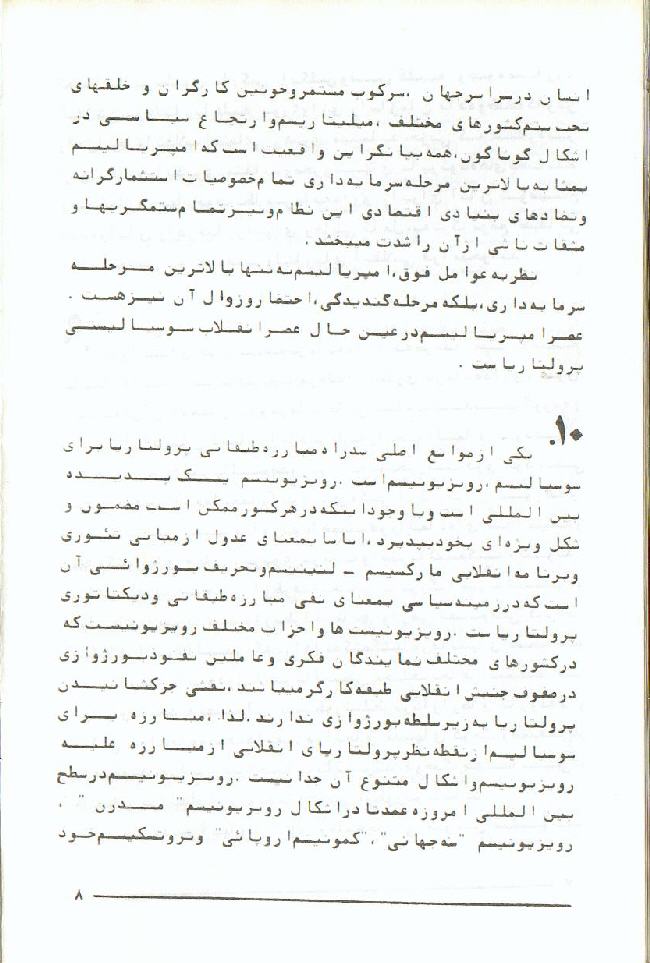 انسان درسراسرجهان ،سرکوب مستمروخونین کارگران و خلقهای
تحت ستم‌کشورهای مختلف ،میلیتاریسم‌وارتجاع سیاسی در
اشکال گوناگون،همه‌بیانگراین واقعیت است‌که‌امپریالیسم
بمثابه‌بالاترین مرحله‌سرمایه‌داری تمام‌خصوصیات استثمارگرانه
وتضادهای بنیادی اقتصادی این نظام‌ونیزتمام‌ستمگریها و
مشقات ناشی ازآن راشدت میبخشد .
نظربه‌عوامل فوق،امپریالیسم‌نه‌تنهابالاترین مرحله
سرمایه‌داری،بلکه‌مرحله‌گندیدگی،احتضاروزوال آن نیزهست .
عصرامپریالیسم‌درعین حال عصرانقلاب سوسیالیستی
پرولتاریاست .
۱۰.
یکی ازموانع اصلی سدراه‌مبارزه‌طبقاتی پرولتاریابرای
سوسیالیسم ،رویزیونیسم‌است .رویزیونیسم یک پدیده
بین المللی است وباوجوداینکه‌درهرکشورممکن است مضمون و
شکل ویژه‌ای بخودبپذیرد،اما‌بمعنای عدول ازمبانی تئوری
وبرنامه‌انقلابی مارکسیسم ـ لنینیسم‌وتحریف بورژوائی آن
است‌که‌درزمینه‌سیاسی بمعنای نفی مبارزه‌طبقاتی ودیکتاتوری
پرولتاریاست .رویزیونیست هاواحزاب مختلف رویزیونیست که
درکشورهای مختلف نمایندگان فکری وعاملین نفوذبورژوازی
درصفوف جنبش انقلابی طبقه‌کارگرمیباشند،نقشی جزکشانیدن
پرولتاریابه‌زیرسلطه‌بورژوازی ندارند.لذا ،مبارزه برای
سوسیالیسم‌ازنقطه‌نظرپرولتاریای انقلابی ازمبارزه علیه
رویزیونیسم‌واشکال متنوع آن جدانیست .رویزیونیسم‌درسطح
بین المللی امروزه‌عمدتادراشکال رویزیونیسم "مدرن" ،
رویزیونیسم "سه‌جهانی"،"کمونیسم‌اروپائی" وتروتسکیسم‌خود
۸